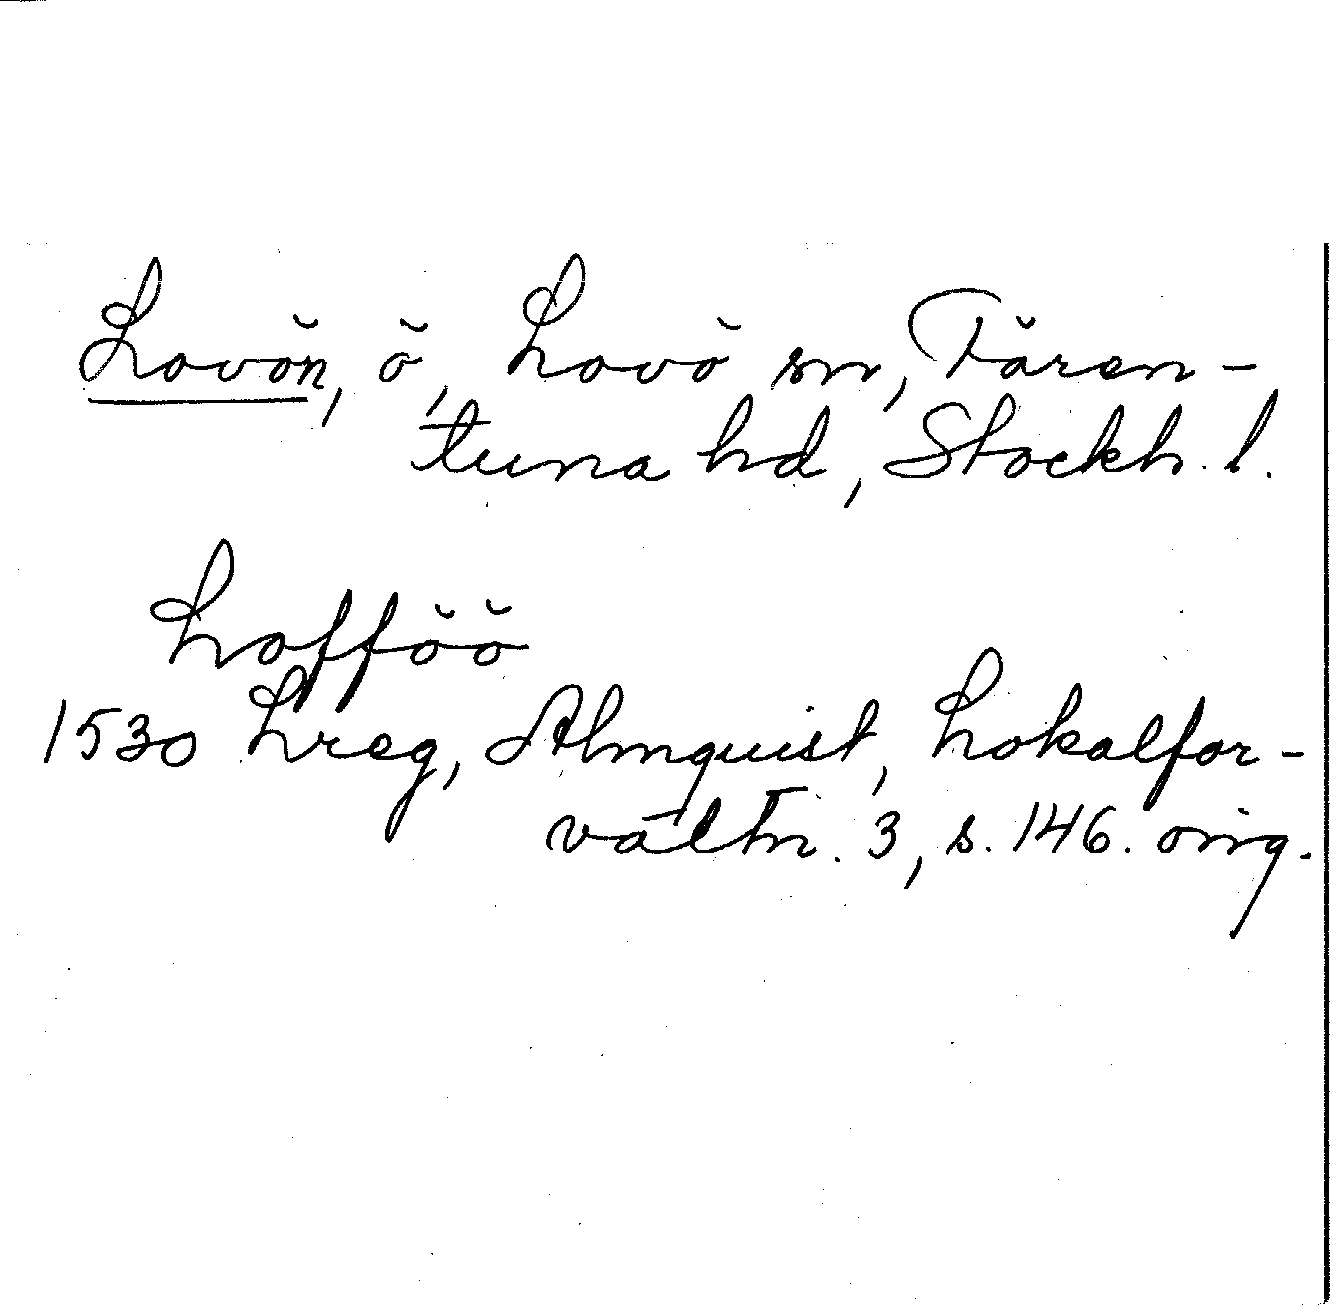 Lovön, ö, Lovö sn, Fären-
tuna hd, Stockh. l.
Lofföö
1530 Lreg, Almquist, Lokalför-
valtn. 3, s. 146. orig.